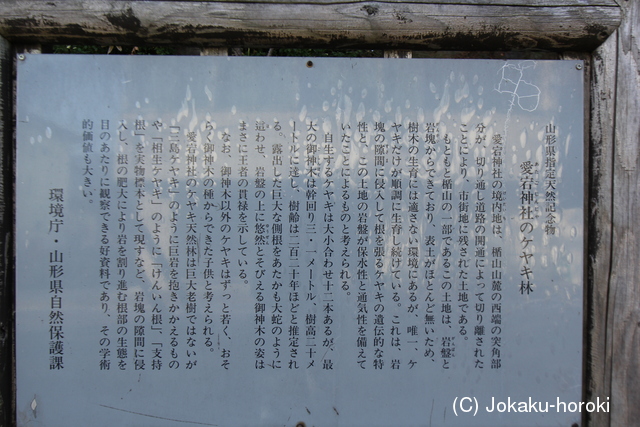 山形県指定天然記念物
愛宕神社のケヤキ林
愛宕神社の境内地は、楯山山麓の西端の突角部
分が、切り通し道路の開通によって切り離された
ことにより、市街地に残された土地である。
もともと楯山の一部であるこの土地は、岩盤と
岩塊からできており、表土がほとんど無いため、
樹木の生育には適さない環境にあるが、唯一、ケ
ヤキだけが順調に生育し続けている。これは、岩
塊の隙間に侵入して根を張るケヤキの遺伝的な特
性と、この土地の岩盤が保水性と通気性を備えて
いたことによるものと考えられる。
自生するケヤキは大小合わせ十二本あるが、最
大の御神木は幹回り三・一メートル、樹高二十メ
ートルに達し、樹齢は二百二十年ほどと推定され
る。露出した巨大な側根をあたかも大蛇のように
這わせ、岩盤の上に悠然とそびえる御神木の姿は
まさに王者の貫禄を示している。
なお、御神木以外のケヤキはずっと若く、おそ
らく御神木の種からできた子供と考えられる。
愛宕神社のケヤキ天然林は巨大老樹ではないが
「三島ケヤキ」のように巨岩を抱きかかえるもの
や「相生ケヤキ」のように「けんいん根」「支持
根」を実物標本として現すなど、岩塊の隙間に侵
入し、根の肥大により岩を割り進む根部の生態を
目のあたりに観察できる好資料であり、その学術
的価値も大きい。
環境庁・山形県自然保護課
(C) Jokaku-horoki